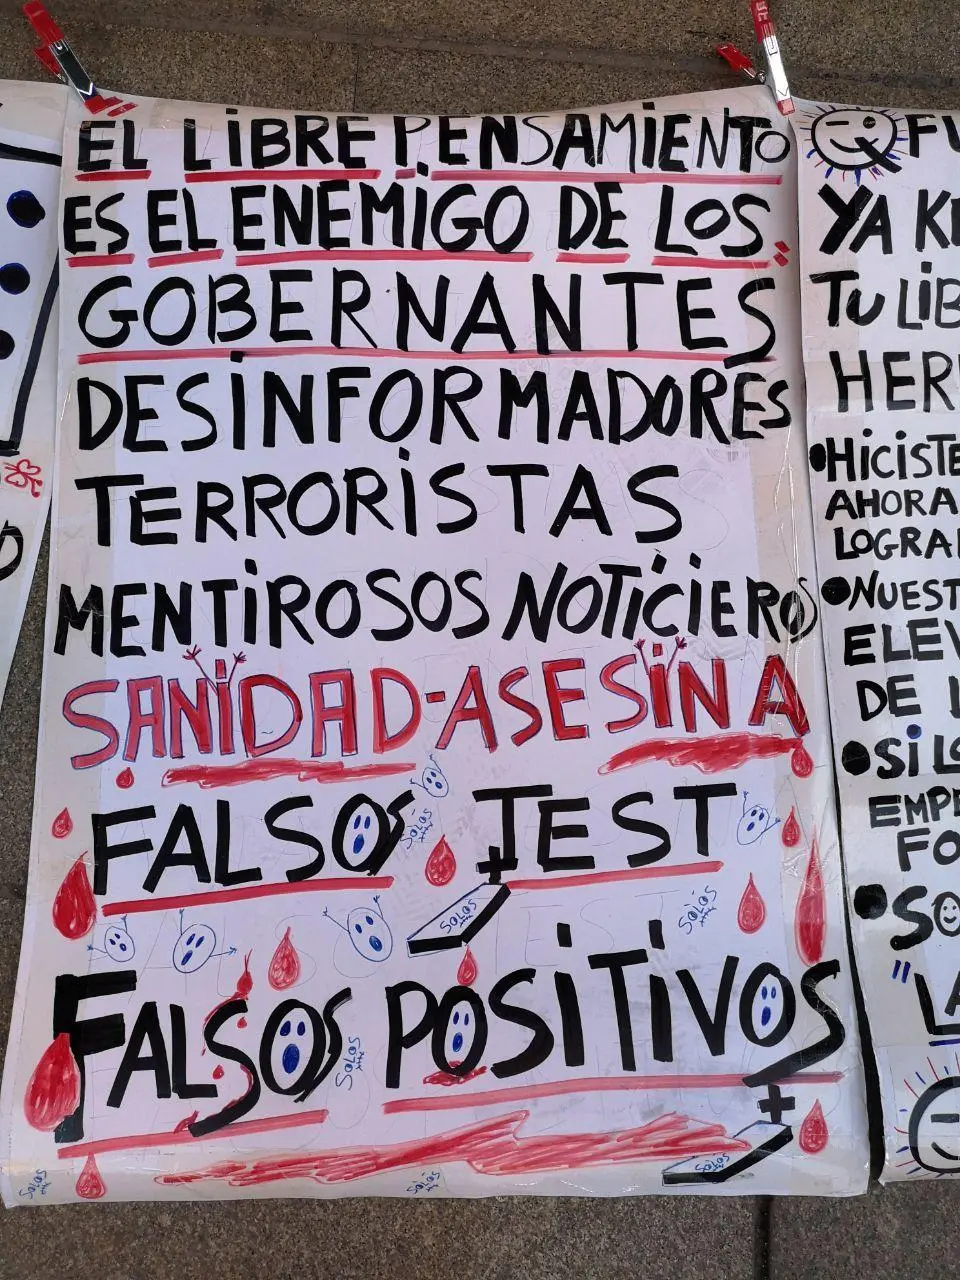 EL LIBRE PENSAMIENTO
ES EL ENEMIGO DE LOS
GOBERNANTES
DESINFORMADORES
TERRORISTAS
MENTIROSOS NOTICIEROS
SANIDAD-ASESINA
FALSOS TEST
SOLOS
SOLOS
SOLOS
FALSOS POSITIVOS
SOLOS
SOLOS
SOLOS
SOLOS
FU
YA KI
TU LIB
HER
•HICISTE
AHORA
LOGRA
•NUEST
ELEV
DE L
•SI LO
EMPE
FO
•SO
"LA